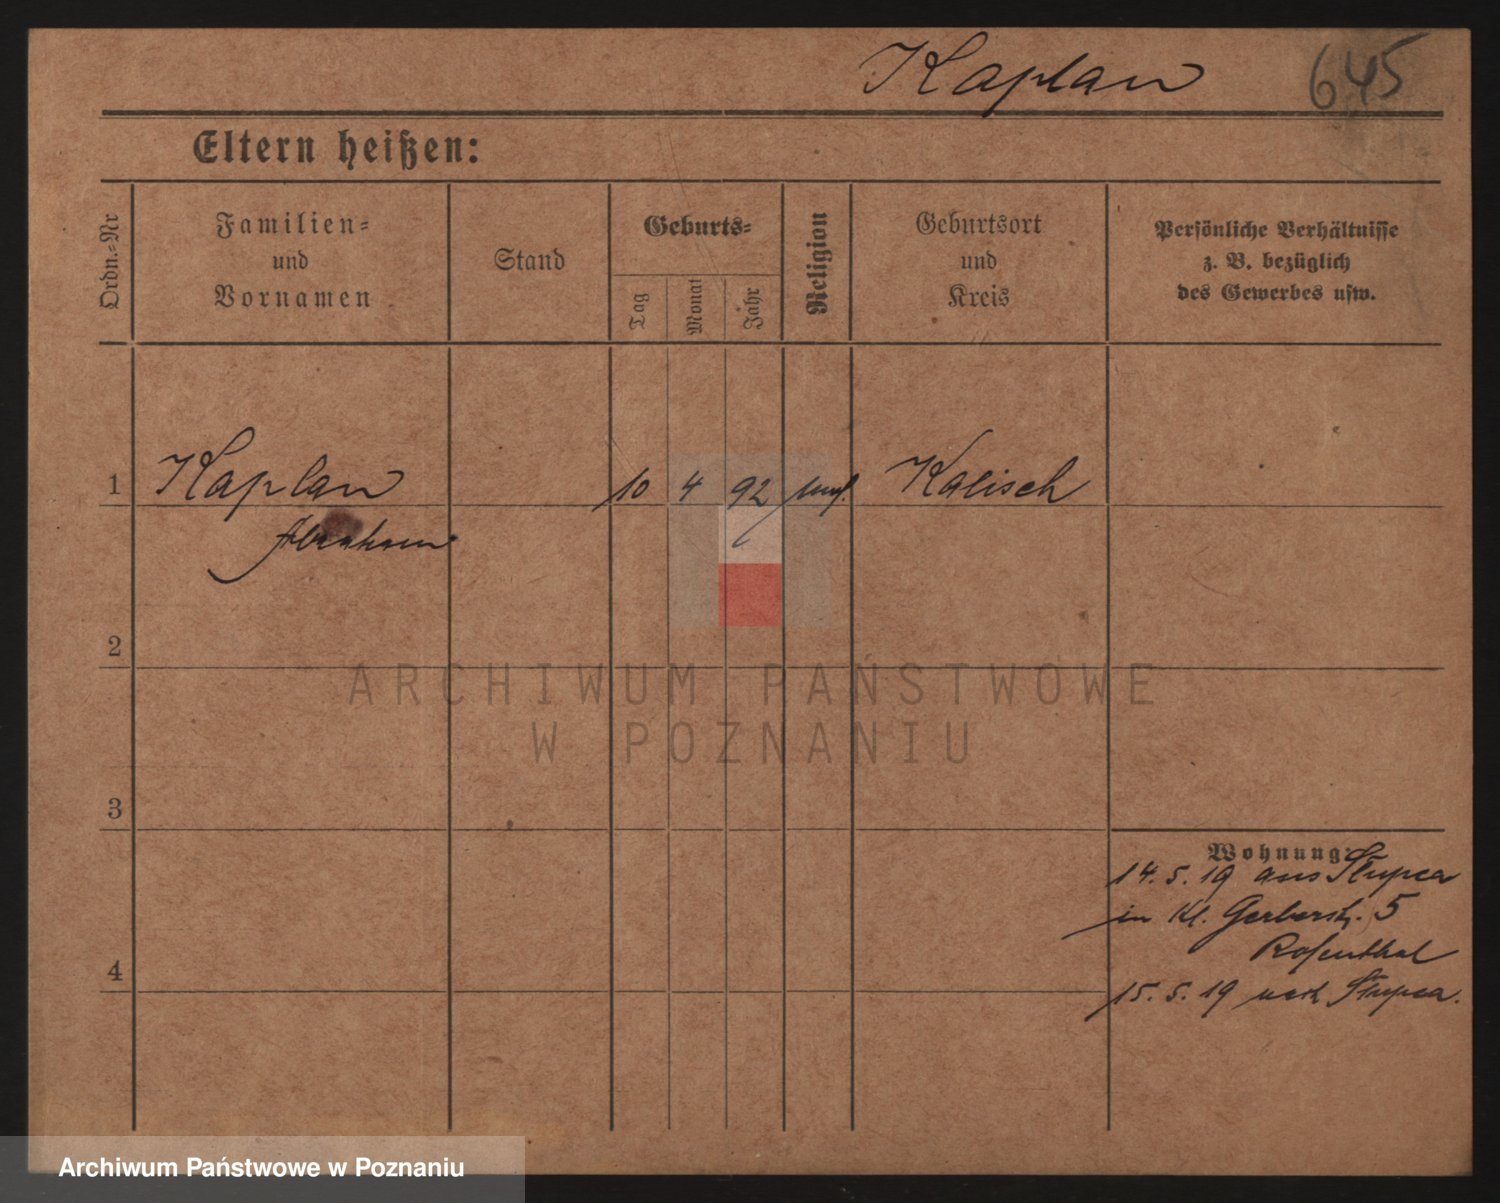 Kaplan 645
Eltern heißen:
Ordn.=Nr
Familien=
und
Vornamen
Stand
Geburts=
Tag
Monat
Jahr
Religion
Geburtsort
und
Kreis
Persönliche Verhältnisse
z. B. bezüglich
des Gewerbes usw.
1 Kaplan 10 4 92 Kalisch
Abraham
2
ARCHIWUM PAŃSTWOWE
W POZNANIU
3
Wohnung:
14. 5. 19 aus Słupca
in Kl. Gerberstr. 5
Rosenthal
4
15. 5. 19 nach Słupca.
Archiwum Państwowe w Poznaniu